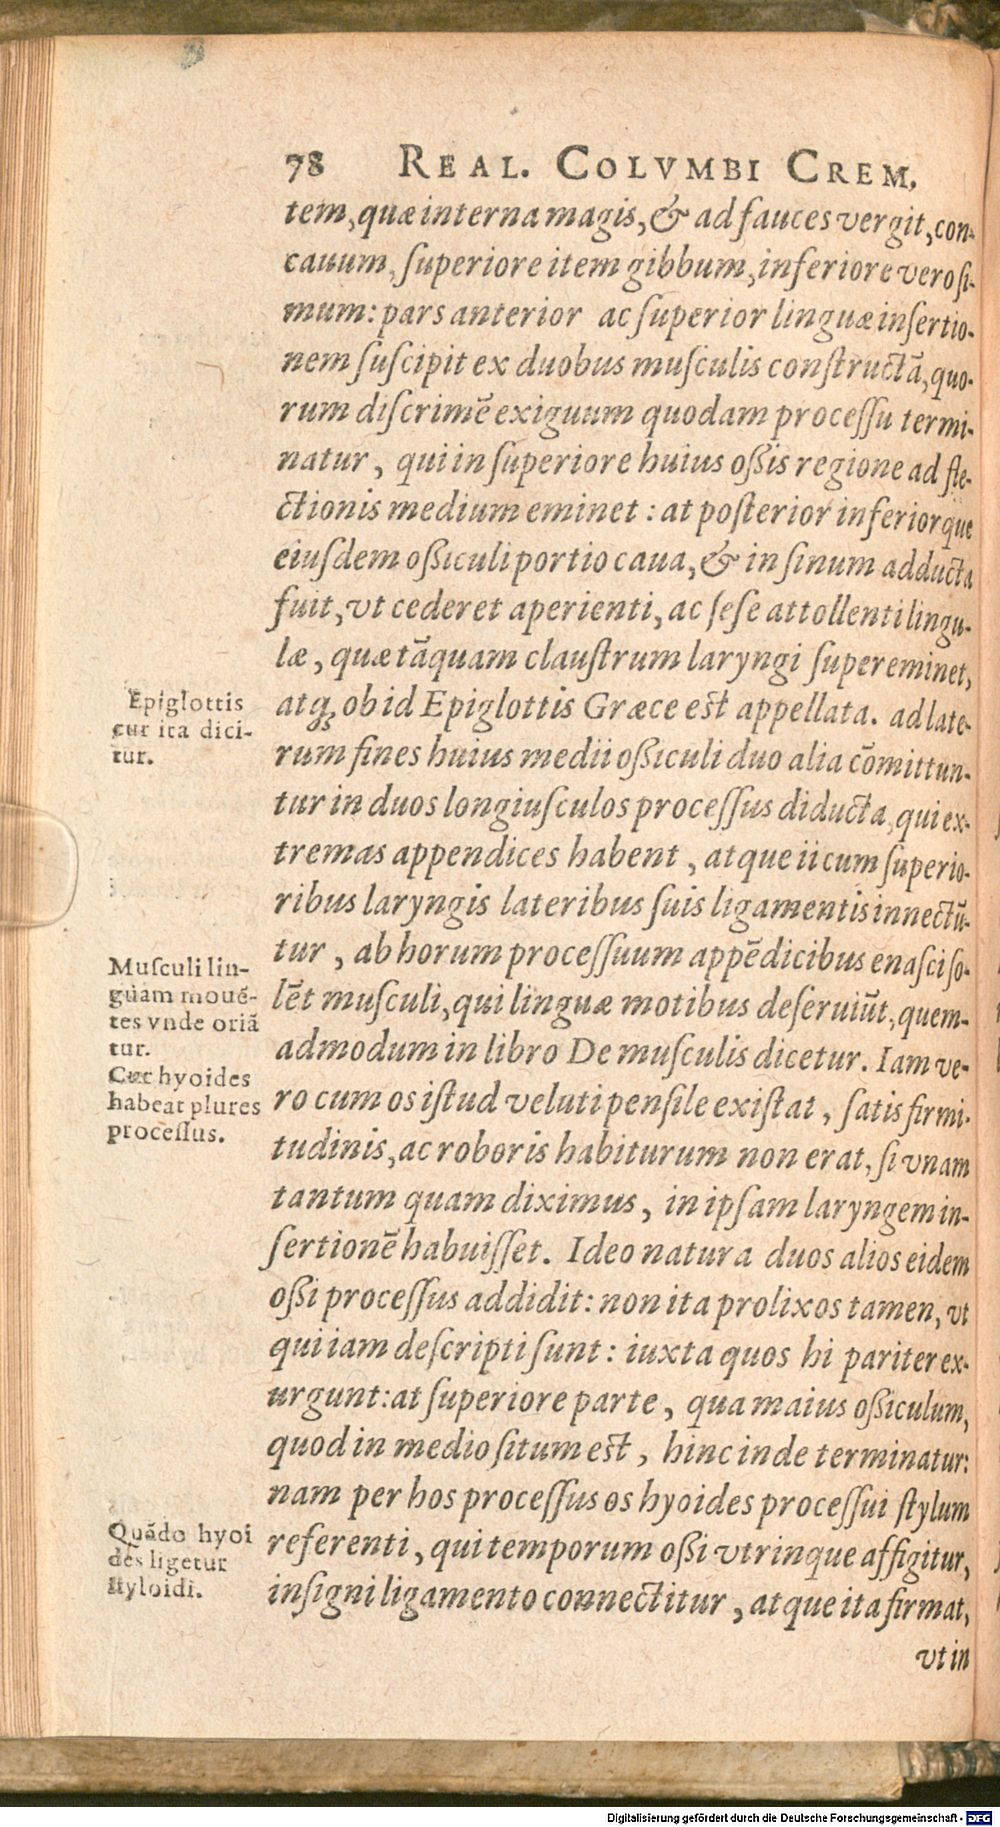 78 REAL. COLVMBI CREM.
tem, quæ interna magis, & ad fauces vergit, con-
cauum, ſuperiore item gibbum, inferiore vero ſi-
mum: pars anterior ac ſuperior linguæ inſertio-
nem ſuſcipit ex duobus muſculis conſtructā, quo-
rum diſcrimē exiguum quodam proceſſu termi-
natur, qui in ſuperiore huius oßis regione ad fle-
ctionis medium eminet: at poſterior inferiorque
eiuſdem oßiculi portio caua, & in ſinum adducta
fuit, vt cederet aperienti, ac ſeſe attollenti lingu-
læ, quæ tāquam clauſtrum laryngi ſupereminet,
atq; ob id Epiglottis Græce eſt appellata. ad late-
rum fines huius medii oßiculi duo alia cōmittun-
tur in duos longiuſculos proceſſus diducta, qui ex-
tremas appendices habent, atque ii cum ſuperio-
ribus laryngis lateribus ſuis ligamentis innectū-
tur, ab horum proceſſuum appēdicibus enaſci ſo-
lēt muſculi, qui linguæ motibus deſeruiūt, quem-
admodum in libro De muſculis dicetur. Iam ve-
ro cum os iſtud veluti penſile exiſtat, ſatis firmi-
tudinis, ac roboris habiturum non erat, ſi vnam
tantum quam diximus, in ipſam laryngem in-
ſertionē habuiſſet. Ideo natura duos alios eidem
oßi proceſſus addidit: non ita prolixos tamen, vt
qui iam deſcripti ſunt: iuxta quos hi pariter ex-
urgunt: at ſuperiore parte, qua maius oßiculum,
quod in medio ſitum eſt, hinc inde terminatur:
nam per hos proceſſus os hyoides proceſſui ſtylum
referenti, qui temporum oßi vtrinque affigitur,
inſigni ligamento connectitur, atque ita firmat,
vt in
Epiglottis
cur ita dici-
tur.
Muſculi lin-
guam mouē-
tes vnde oriā
tur.
Cur hyoides
habeat plures
proceſſus.
Quādo hyoi
des ligetur
ſtyloidi.
Digitalisierung gefördert durch die Deutsche Forschungsgemeinschaft - DFG